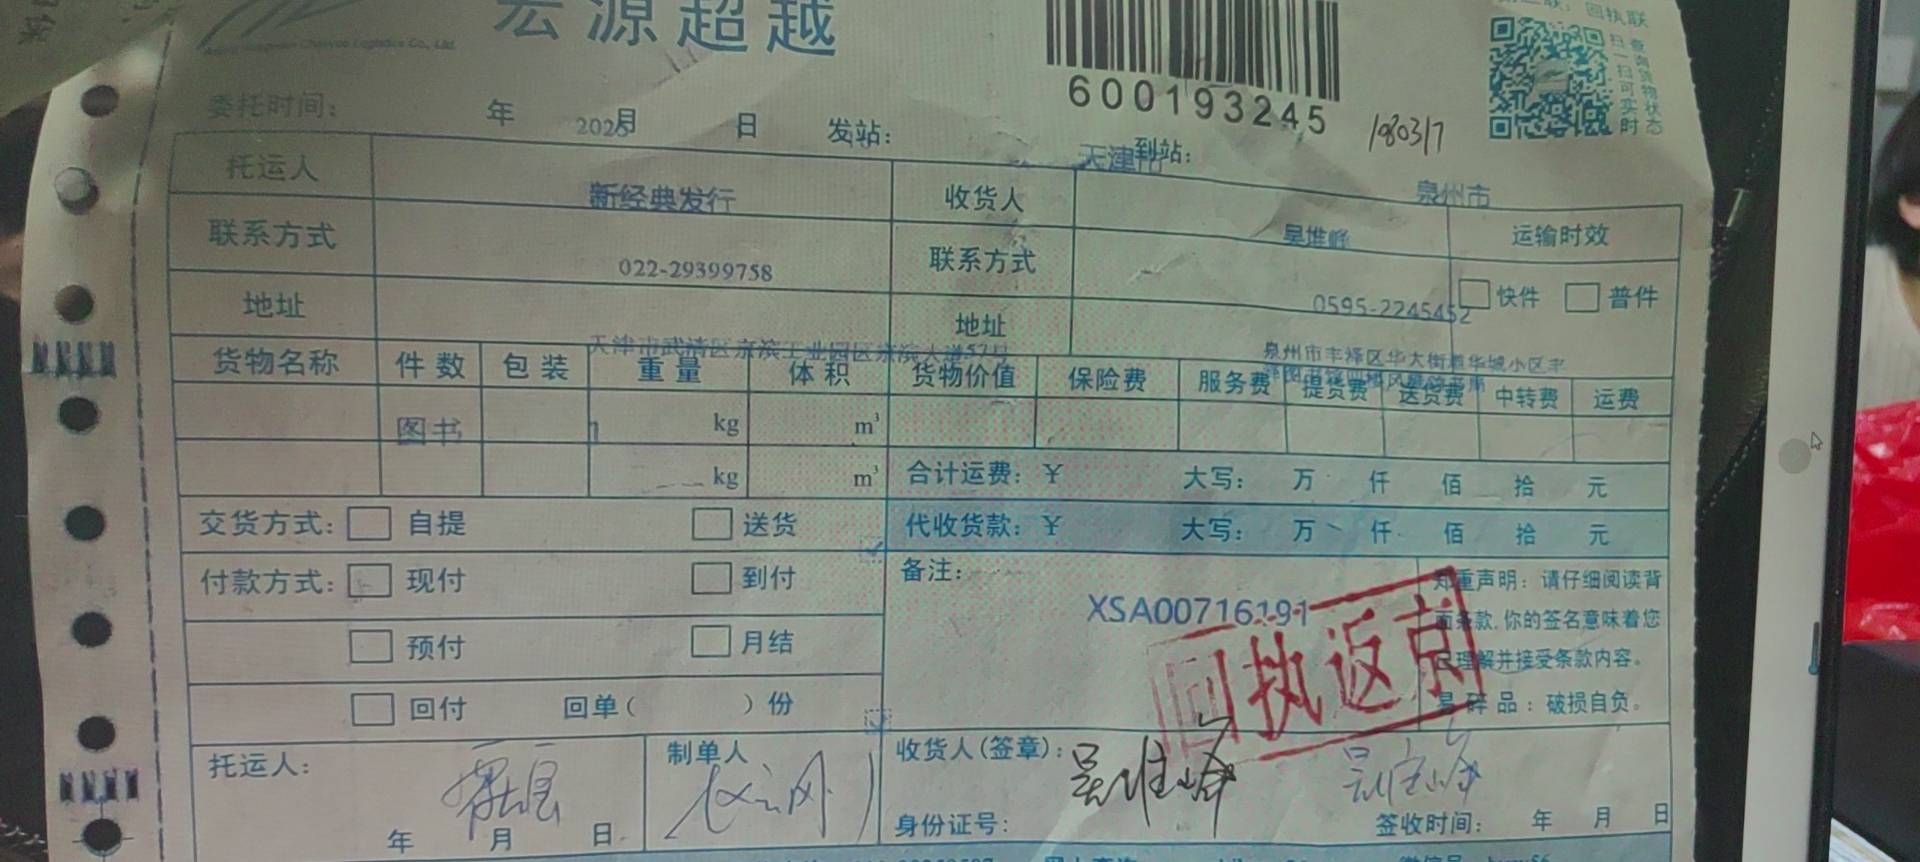 宏源超越
回执联
查询货物状态
扫一扫可实时
600193245
委托时间: 年 月 日 发站: 到站:
天津市
泉州市
托运人 新经典发行 收货人 吴惟峰 运输时效
联系方式 022-29399758 联系方式 0595-2245452 快件 普件
地址 天津市武清区京滨工业园区京滨大道57号 地址 泉州市丰泽区华大街道华城小区丰
货物名称 件数 包装 重量 体积 货物价值 保险费 服务费 提货费 送货费 中转费 运费
图书 1 kg m³
kg m³ 合计运费: ¥ 大写: 万 仟 佰 拾 元
交货方式: 自提 送货 代收货款: ¥ 大写: 万 仟 佰 拾 元
付款方式: 现付 到付 备注: XSA00716191
预付 月结
回付 回单( )份
郑重声明: 请仔细阅读背
面条款,你的签名意味着您
已理解并接受条款内容。
易碎品: 破损自负。
回执返京
托运人: 制单人 收货人(签章): 吴惟峰 吴惟峰
年 月 日 身份证号: 签收时间: 年 月 日